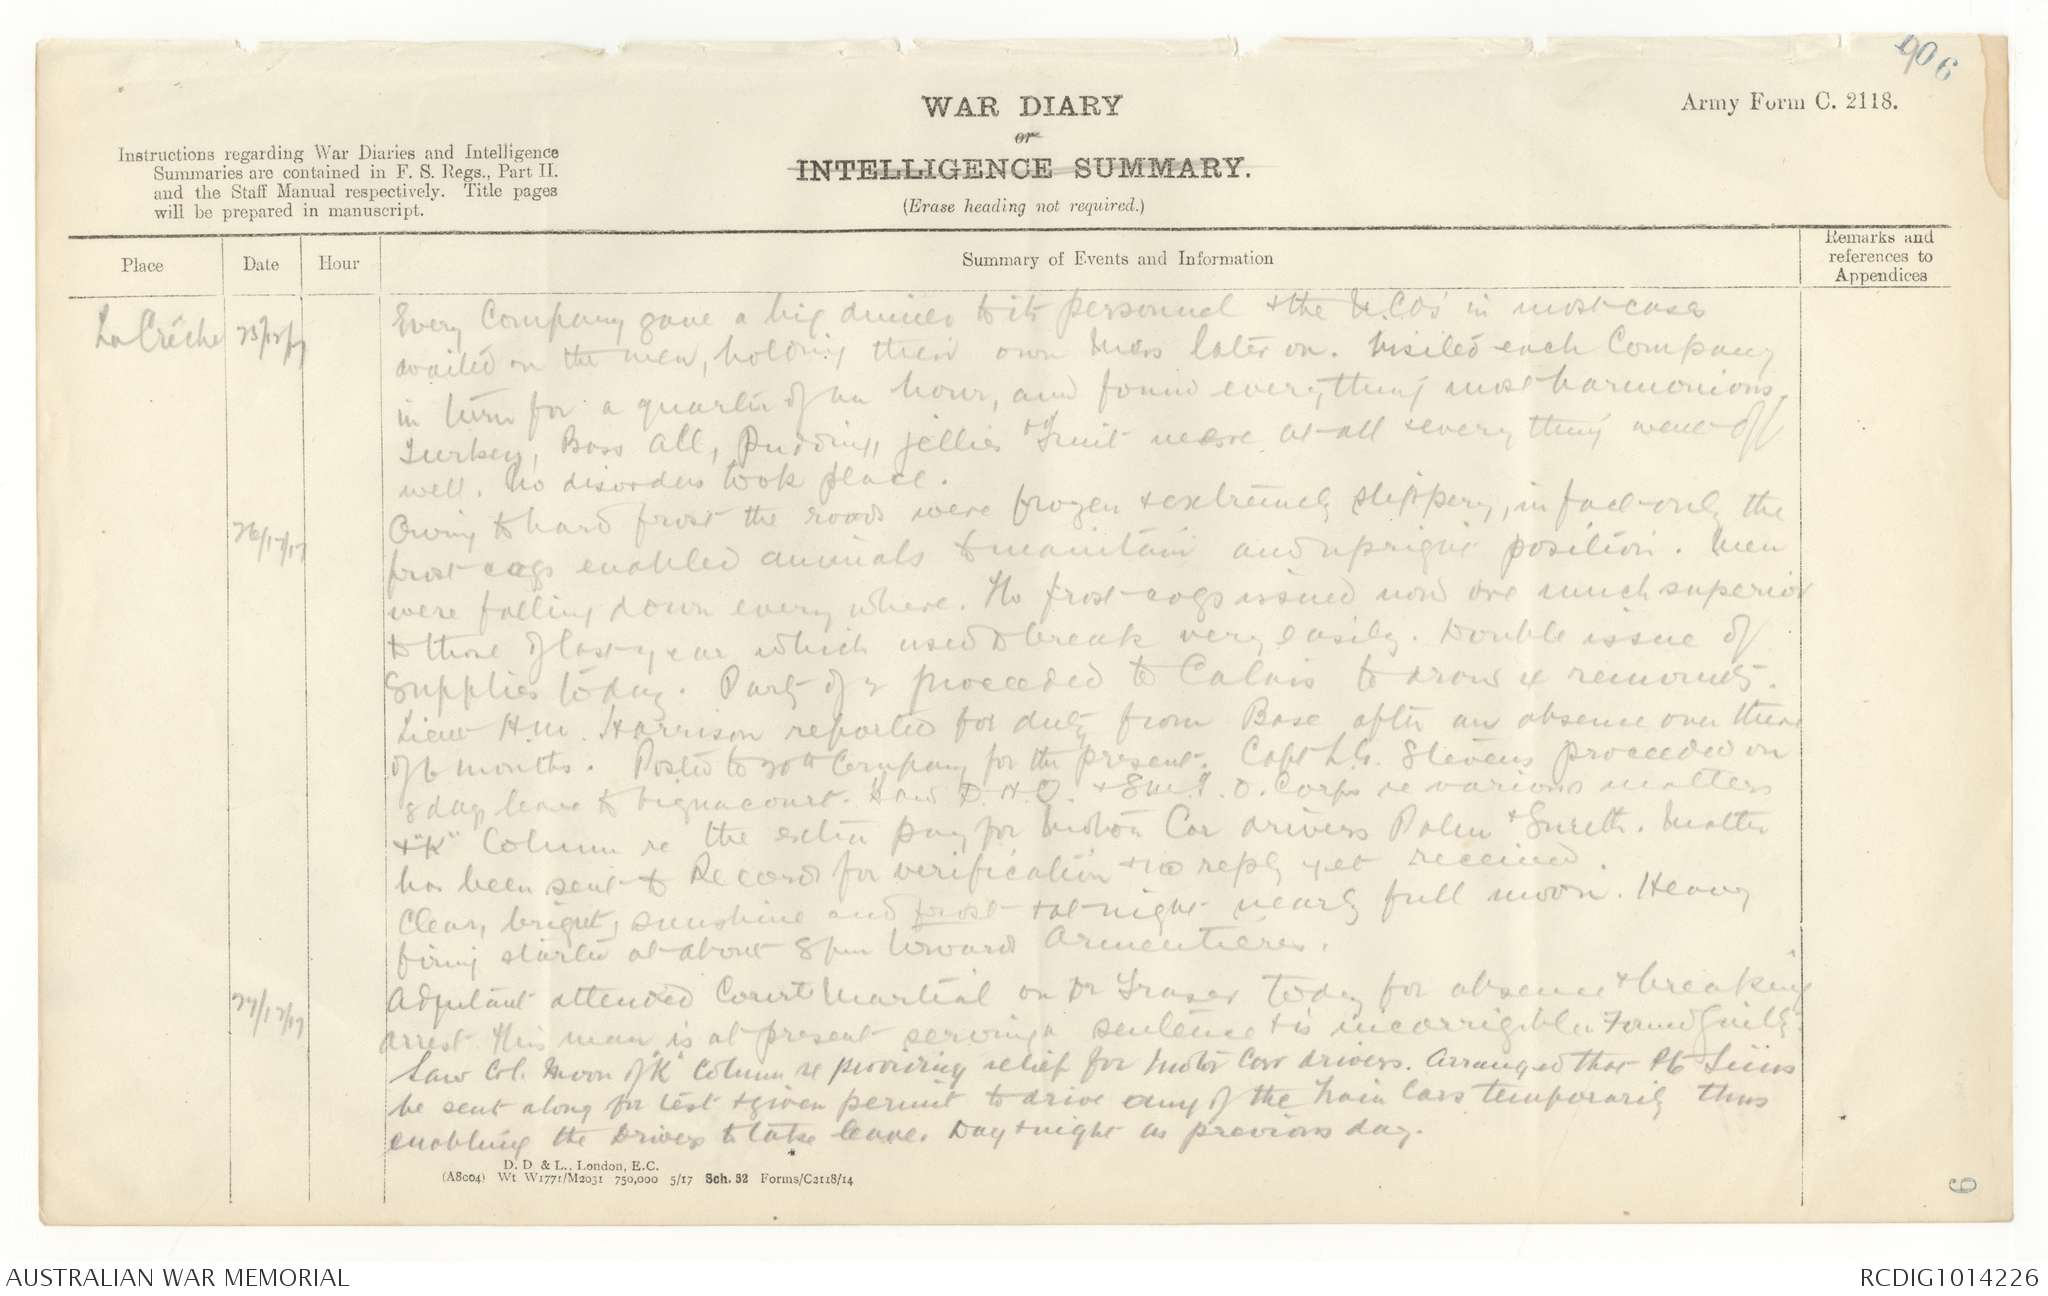 906
Army Form C. 2118.
WAR DIARY
or
INTELLIGENCE SUMMARY.
(Erase heading not required.)
Instructions regarding War Diaries and Intelligence
Summaries are contained in F. S. Regs., Part II.
and the Staff Manual respectively. Title pages
will be prepared in manuscript.
Place
Date
Hour
Summary of Events and Information
Remarks and
references to
Appendices
La Crêche 25/12/17 Every Company gave a big dinner to its personnel & the N.C.O's in most cases
waited on the men, holding their own Mess later on. Visited each Company
in turn for a quarter of an hour, and found everything most harmonious.
Turkey, Bass All, pudding, jellies & fruit were at all & everything went off
well. No disorders took place.
26/12/17 Owing to hard frost the roads were frozen & extremely slippery, in fact only the
frost cogs enabled animals to maintain and upright position. Men
were falling down everywhere. The frost cogs issued now are much superior
to those of last year which used to break very easily. Double issue of
Supplies today. Party of 2 proceeded to Calais to draw 4 remounts.
Lieut H.M. Harrison reported for duty from Base after an absence over there
of 6 months. Posted to 20th Company for the present. Capt L.G. Stevens proceeded on
8 days leave to Vignacourt. Saw D.H.Q. & S.M.T.O. Corps re various matters
& "K" Column re the extra pay for Motor Car drivers Palm & Smith. Matter
has been sent to Records for verification & no reply yet received.
Clear, bright, sunshine and frost & at night nearly full moon. Heavy
firing started at about 8 pm toward Armentieres.
27/12/17 Adjutant attended Court Martial on Dr Fraser today for absence & breaking
arrest. This man is at present serving a sentence & is incorrigible. Found guilty.
Saw Col. Moon of "K" Column re providing relief for Motor Car drivers. Arranged that Pte
be sent along for test & given permit to drive any of the Train Cars temporarily thus
enabling the Drivers to take leave. Day & night as previous day.
D. D & L., London, E.C.
(A8004) Wt W1771/M2031 750,000 5/17 Sch. 52 Forms/C2118/14
6
AUSTRALIAN WAR MEMORIAL
RCDIG1014226